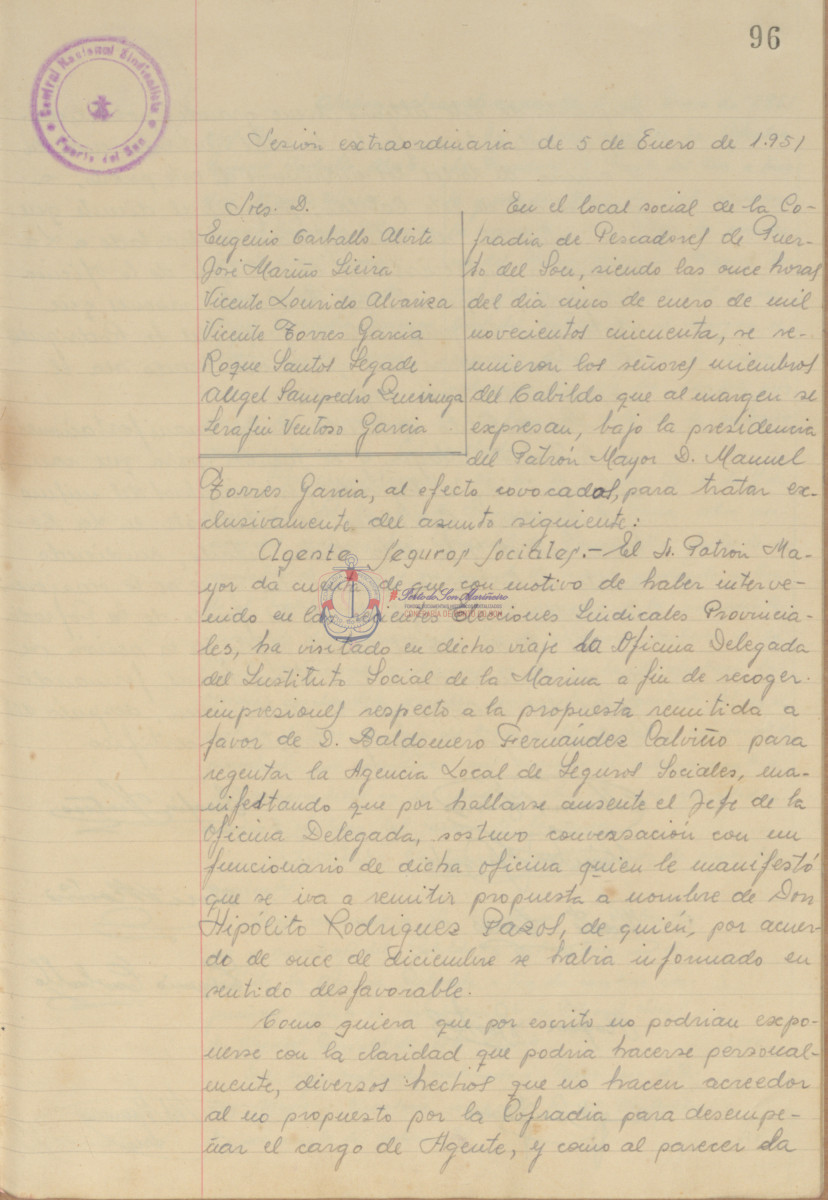 96
Central Nacional Sindicalista
Puerto del Son
Sesión extraordinaria de 5 de Enero de 1.951
Sres. D.
Eugenio Carballo Alvite
José Mariño Lieira
Vicente Lourido Alvariza
Vicente Torres Garcia
Roque Santos Segade
Angel Sampedro Queiruga
Serafin Ventoso Garcia
En el local social de la Co-
fradia de Pescadores de Puer-
to del Son, siendo las once horas
del dia cinco de enero de mil
novecientos cincuenta, se re-
unieron los señores miembros
del Cabildo que al margen se
expresan, bajo la presidencia
del Patrón Mayor D. Manuel
Torres Garcia, al efecto covocados, para tratar ex-
clusivamente del asunto siguiente:
Agente Seguros Sociales.- El Sr. Patron Ma-
yor dá cuenta de que con motivo de haber interve-
nido en las recientes Elecciones Sindicales Provincia-
les, ha visitado en dicho viaje la Oficina Delegada
del Instituto Social de la Marina a fin de recoger
impresiones respecto a la propuesta remitida a
favor de D. Baldomero Fernández Calviño para
regentar la Agencia Local de Seguros Sociales, ma-
nifestando que por hallarse ausente el Jefe de la
Oficina Delegada, sostuvo conversación con un
funcionario de dicha oficina quien le manifestó
que se iva a remitir propuesta a nombre de Don
Hipólito Rodriguez Pazos, de quién, por acuer-
do de once de diciembre se habia informado en
sentido desfavorable.
Como quiera que por escrito no podrian expo-
nerse con la claridad que podria hacerse personal-
mente, diversos hechos que no hacen acreedor
al no propuesto por la Cofradia para desempe-
ñar el cargo de Agente, y como al parecer la
Porto do Son Mariñeiro